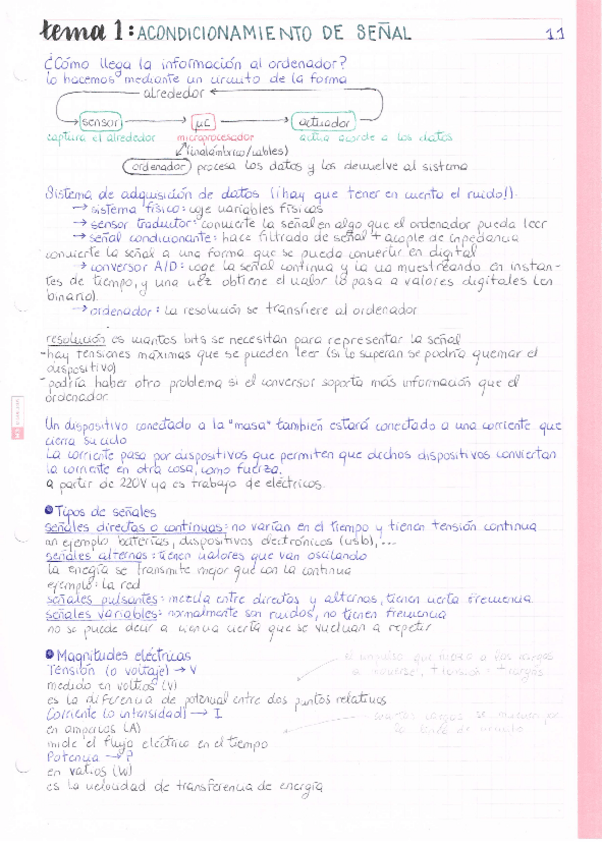 tema 1: ACONDICIONAMIENTO DE SEÑAL 1.1
¿Cómo llega la información al ordenador?
lo hacemos mediante un circuito de la forma
alrededor
sensor μC actuador
captura el alrededor microprocesador actúa acorde a los datos
(inalámbrico/cables)
ordenador procesa los datos y los devuelve al sistema
Sistema de adquisición de datos (¡hay que tener en cuenta el ruido!):
→ sistema físico: coge variables físicas
→ sensor traductor: convierte la señal en algo que el ordenador pueda leer
→ señal condicionante: hace filtrado de señal + acople de impedancia
convierte la señal a una forma que se pueda convertir en digital
→ conversor A/D: coge la señal continua y la va muestreando en instan-
tes de tiempo, y una vez obtiene el valor lo pasa a valores digitales (en
binario).
→ ordenador: la resolución se transfiere al ordenador
resolución es cuantos bits se necesitan para representar la señal
- hay tensiones máximas que se pueden leer (si lo superan se podría quemar el
dispositivo)
- podría haber otro problema si el conversor soporta más información que el
ordenador.
Un dispositivo conectado a la "masa" también estará conectado a una corriente que
cierra su ciclo
La corriente pasa por dispositivos que permiten que dichos dispositivos conviertan
la corriente en otra cosa, como fuerza.
a partir de 220V ya es trabajo de eléctricos.
Tipos de señales
señales directas o continuas: no varían en el tiempo y tienen tensión continua
un ejemplo baterías, dispositivos electrónicos (usb), ...
señales alternas: tienen valores que van oscilando
la energía se transmite mejor que con la continua
ejemplo: la red
señales pulsantes: mezcla entre directas y alternas, tienen cierta frecuencia
señales variables: normalmente son ruidos, no tienen frecuencia
no se puede decir a ciencia cierta que se vuelvan a repetir
Magnitudes eléctricas
Tensión (o voltaje) → V
medido en voltios (V)
es la diferencia de potencial entre dos puntos relativos
Corriente (o intensidad) → I
en amperios (A)
mide el flujo eléctrico en el tiempo
Potencia → P
en vatios (W)
es la velocidad de transferencia de energía